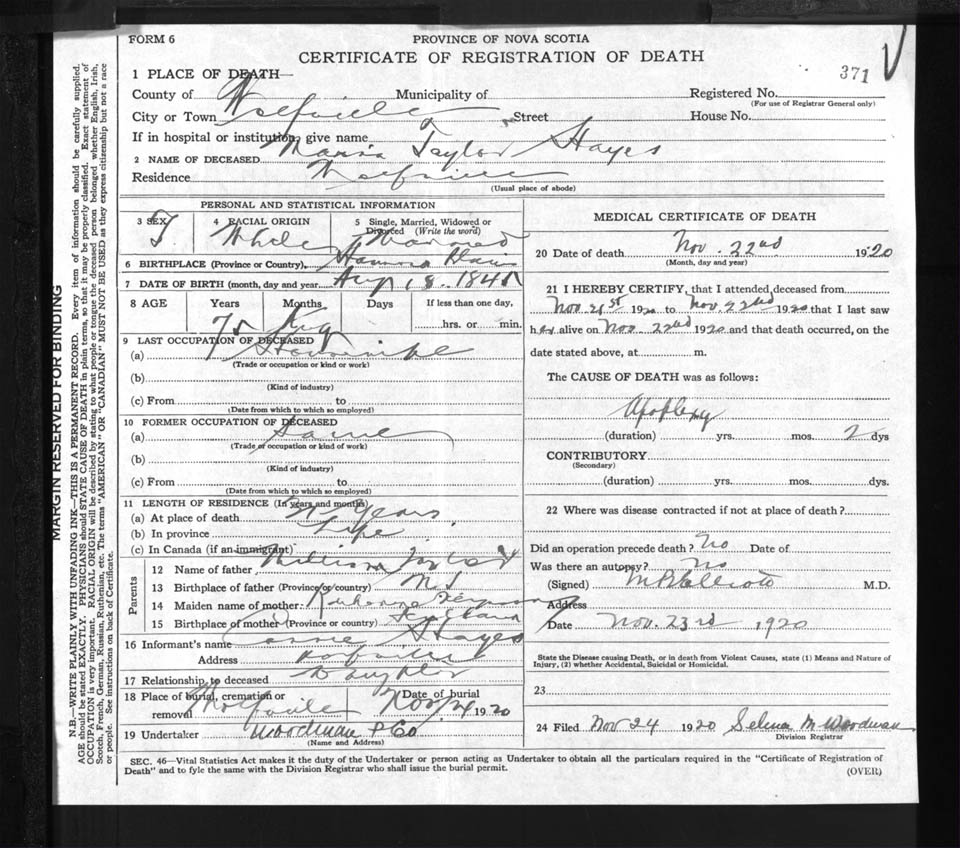 FORM 6
PROVINCE OF NOVA SCOTIA
CERTIFICATE OF REGISTRATION OF DEATH
371
1 PLACE OF DEATH—
County of Municipality of Registered No.
(For use of Registrar General only)
City or Town Wolfville Street House No.
If in hospital or institution, give name
2 NAME OF DECEASED Maria Taylor Hayes
Residence Wolfville
(Usual place of abode)
PERSONAL AND STATISTICAL INFORMATION
3 SEX F. 4 RACIAL ORIGIN White 5 Single, Married, Widowed or Divorced (Write the word)
6 BIRTHPLACE (Province or Country) Plains
7 DATE OF BIRTH (month, day and year) Aug 18. 1845
8 AGE Years Months Days If less than one day,
75 hrs. or min.
9 LAST OCCUPATION OF DECEASED
(a) Housewife
(Trade or occupation or kind of work)
(b)
(Kind of industry)
(c) From to
(Date from which to which so employed)
10 FORMER OCCUPATION OF DECEASED
(a) Same
(Trade or occupation or kind of work)
(b)
(Kind of industry)
(c) From to
(Date from which to which so employed)
11 LENGTH OF RESIDENCE (In years and months)
(a) At place of death Years
(b) In province Life
(c) In Canada (if an immigrant)
Parents
12 Name of father William Taylor
13 Birthplace of father (Province or country) N.S
14 Maiden name of mother
15 Birthplace of mother (Province or country)
16 Informant's name Hayes
Address Wolfville
17 Relationship to deceased Daughter
18 Place of burial, cremation or removal Wolfville Date of burial Nov 24 1920
19 Undertaker Woodman & Co
(Name and Address)
MEDICAL CERTIFICATE OF DEATH
20 Date of death Nov. 22nd 1920
(Month, day and year)
21 I HEREBY CERTIFY, that I attended deceased from
Nov 21st 1920 to Nov 22nd 1920 that I last saw
her alive on Nov 22nd 1920 and that death occurred, on the
date stated above, at m.
The CAUSE OF DEATH was as follows:
Apoplexy
(duration) yrs. mos. 2 dys
CONTRIBUTORY
(Secondary)
(duration) yrs. mos. dys.
22 Where was disease contracted if not at place of death?
Did an operation precede death? No Date of
Was there an autopsy? No
(Signed) M.D.
Address
Date Nov. 23rd 1920
State the Disease causing Death, or in death from Violent Causes, state (1) Means and Nature of
Injury, (2) whether Accidental, Suicidal or Homicidal.
23
24 Filed Nov 24 1920 Selina M Woodman
Division Registrar
SEC. 46—Vital Statistics Act makes it the duty of the Undertaker or person acting as Undertaker to obtain all the particulars required in the "Certificate of Registration of
Death" and to fyle the same with the Division Registrar who shall issue the burial permit.
(OVER)
MARGIN RESERVED FOR BINDING
N.B.—WRITE PLAINLY WITH UNFADING INK—THIS IS A PERMANENT RECORD. Every item of information should be carefully supplied.
AGE should be stated EXACTLY. PHYSICIANS should STATE CAUSE OF DEATH in plain terms, so that it may be properly classified. Exact statement of
OCCUPATION is very important. RACIAL ORIGIN will be described by stating to what people or tongue the deceased person belonged whether English, Irish,
Scotch, French, German, Russian, Ruthenian, etc. The terms "AMERICAN" OR "CANADIAN" MUST NOT BE USED as they express citizenship but not a race
or people. See instructions on back of Certificate.